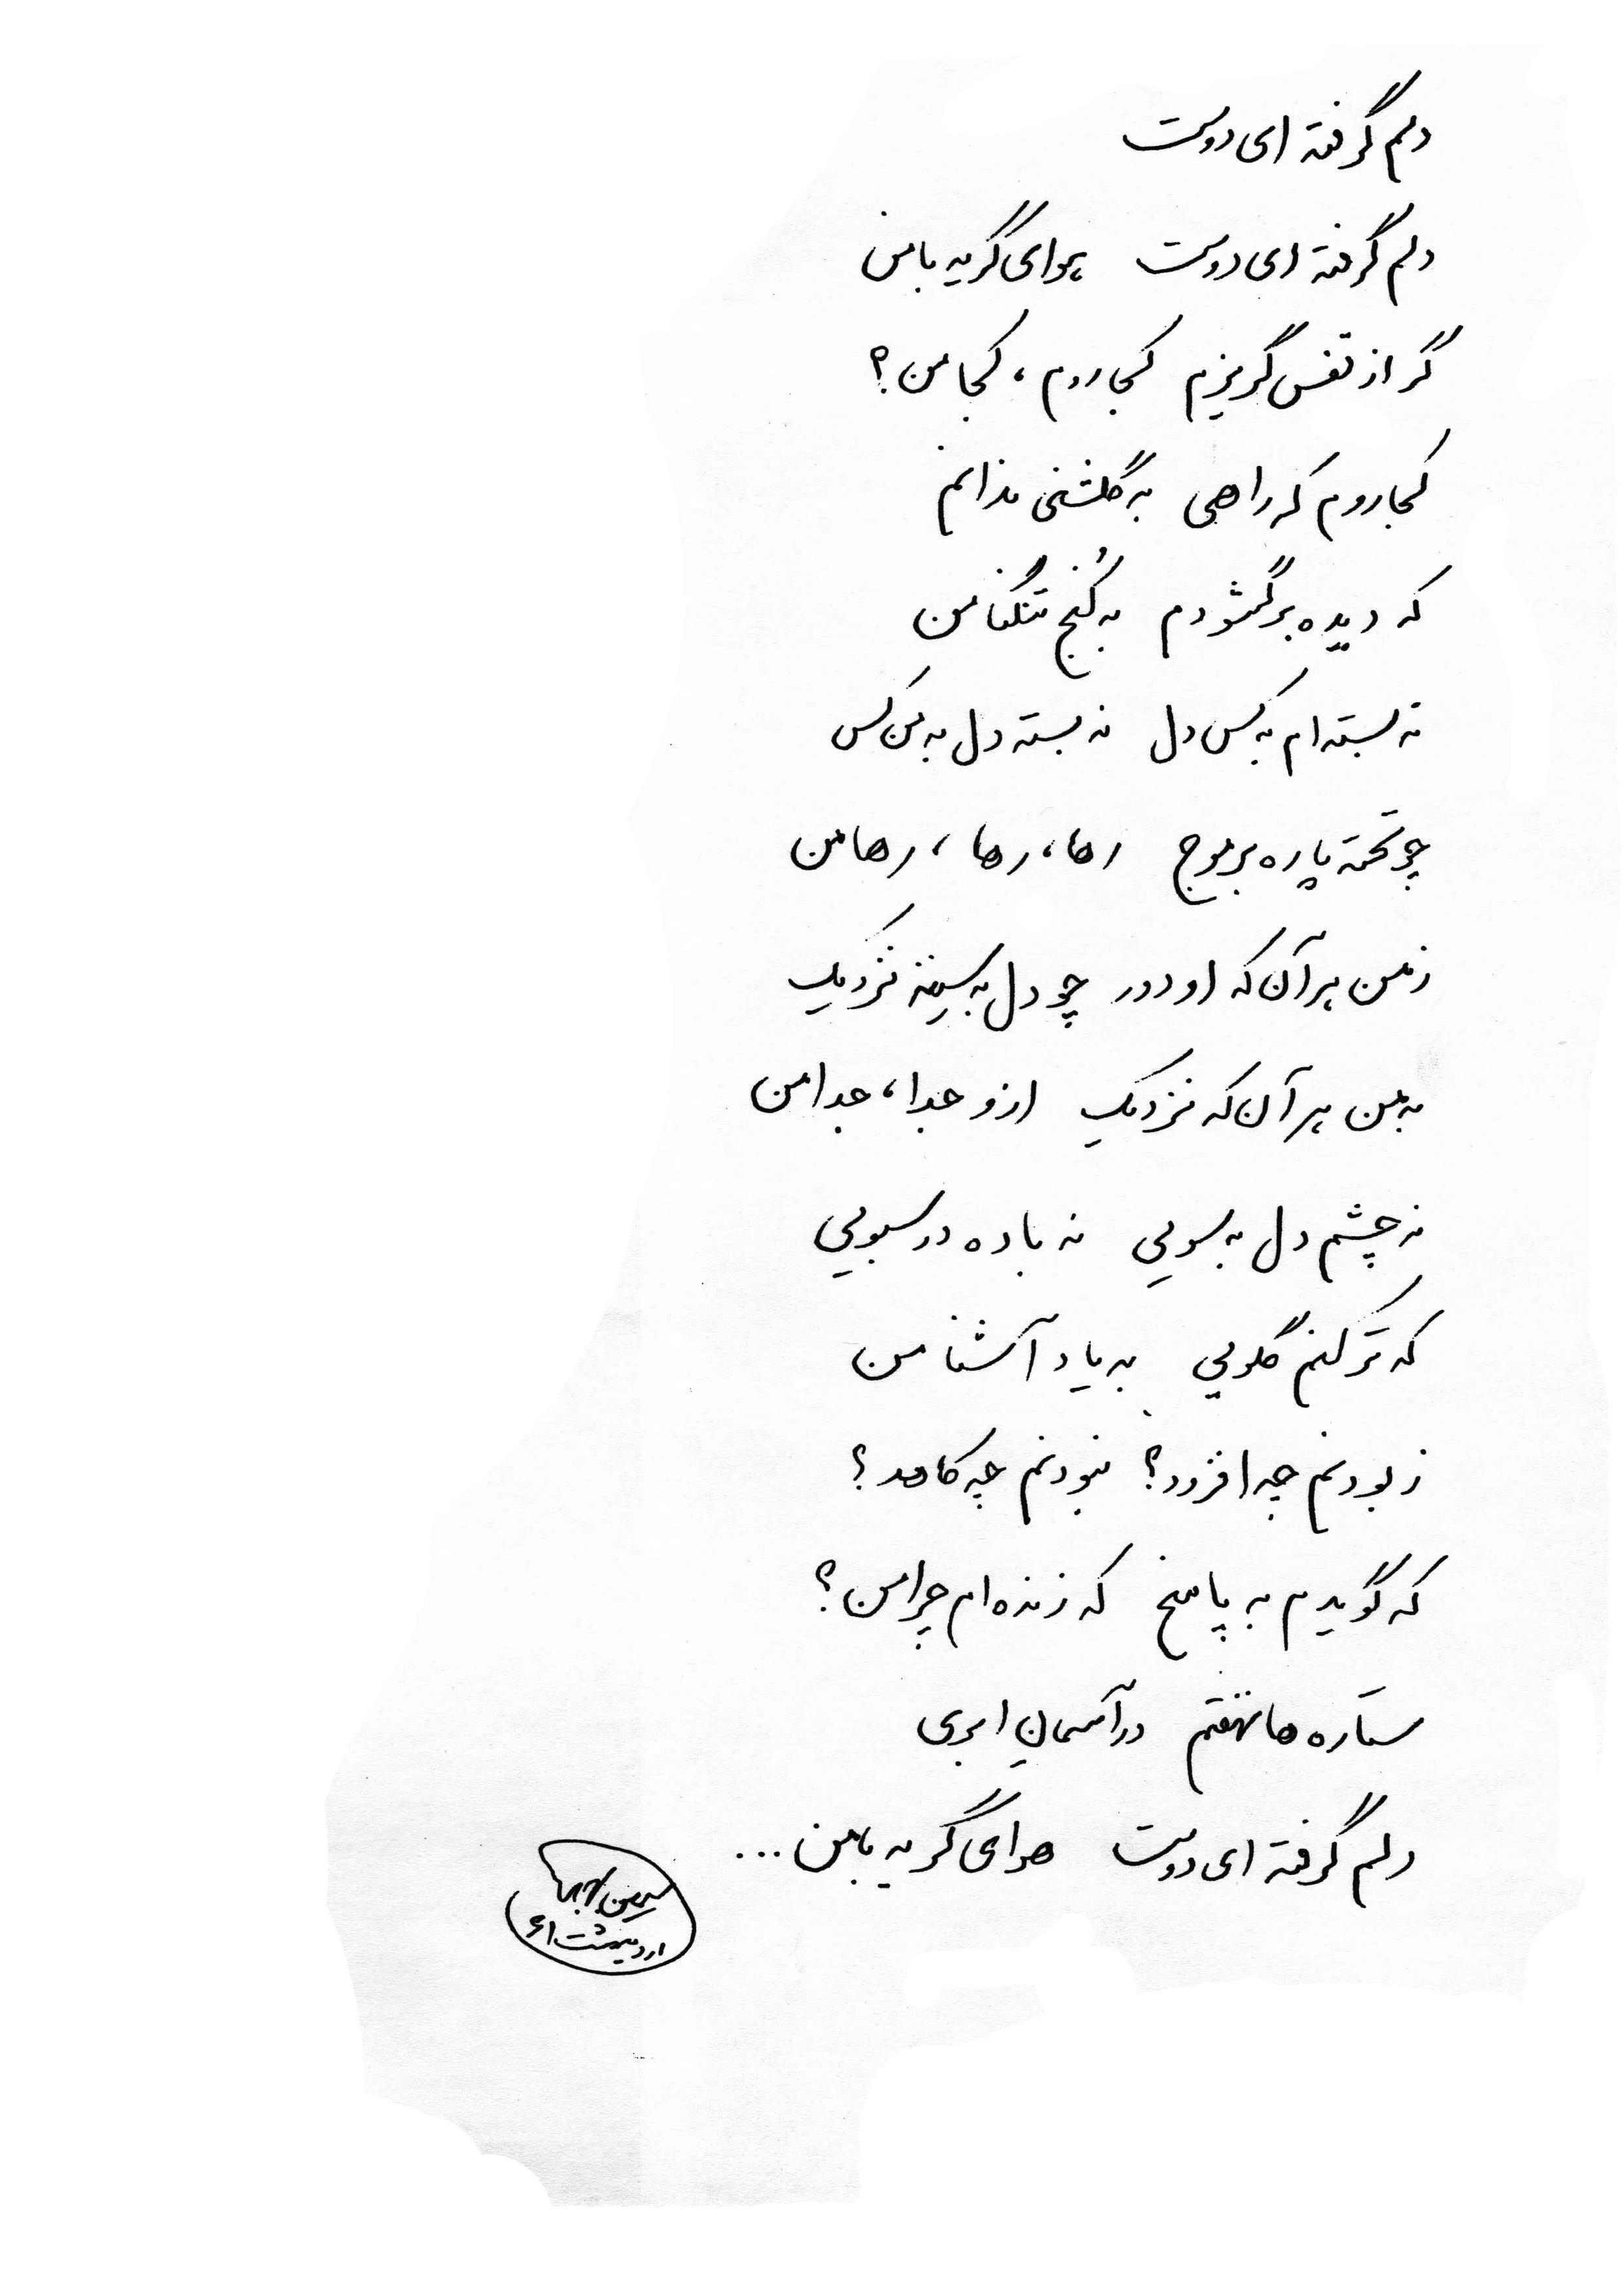 دلم گرفته ای دوست
دلم گرفته ای دوست هوای گریه با من
گر از قفس گریزم کجا روم، کجا من؟
کجا روم که راهی به گلشنی ندانم
که دیده برگشودم به کُنج تنگنا من
نه بسته ام به کس دل نه بسته دل به من کس
چو تخته پاره بر موج رها، رها، رها من
ز من هر آن که او دور چو دل به سینه نزدیک
به من هر آن که نزدیک ازو جدا، جدا من
نه چشم دل به سویی نه باده در سبویی
که تر کنم گلویی به یاد آشنا من
ز بودنم چه افزود؟ نبودنم چه کاهد؟
که گویدم به پاسخ که زنده ام چرا من؟
ستاره ها نهفتم در آسمانِ ابری
دلم گرفته ای دوست هوای گریه با من ...
سیمین بهبها
اردیبهشت